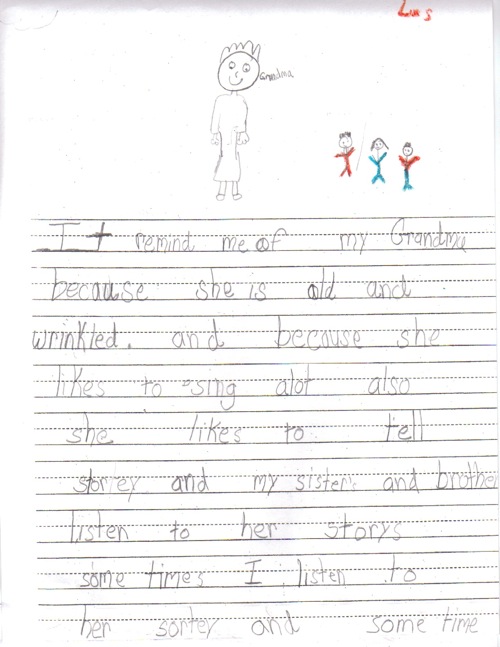 Luis
Grandma
It remind me of my Grandma
because she is old and
wrinkled. and because she
likes to sing alot also
she likes to tell
storey and my sisters and brother
listen to her storys
some times I listen to
her sortey and some time